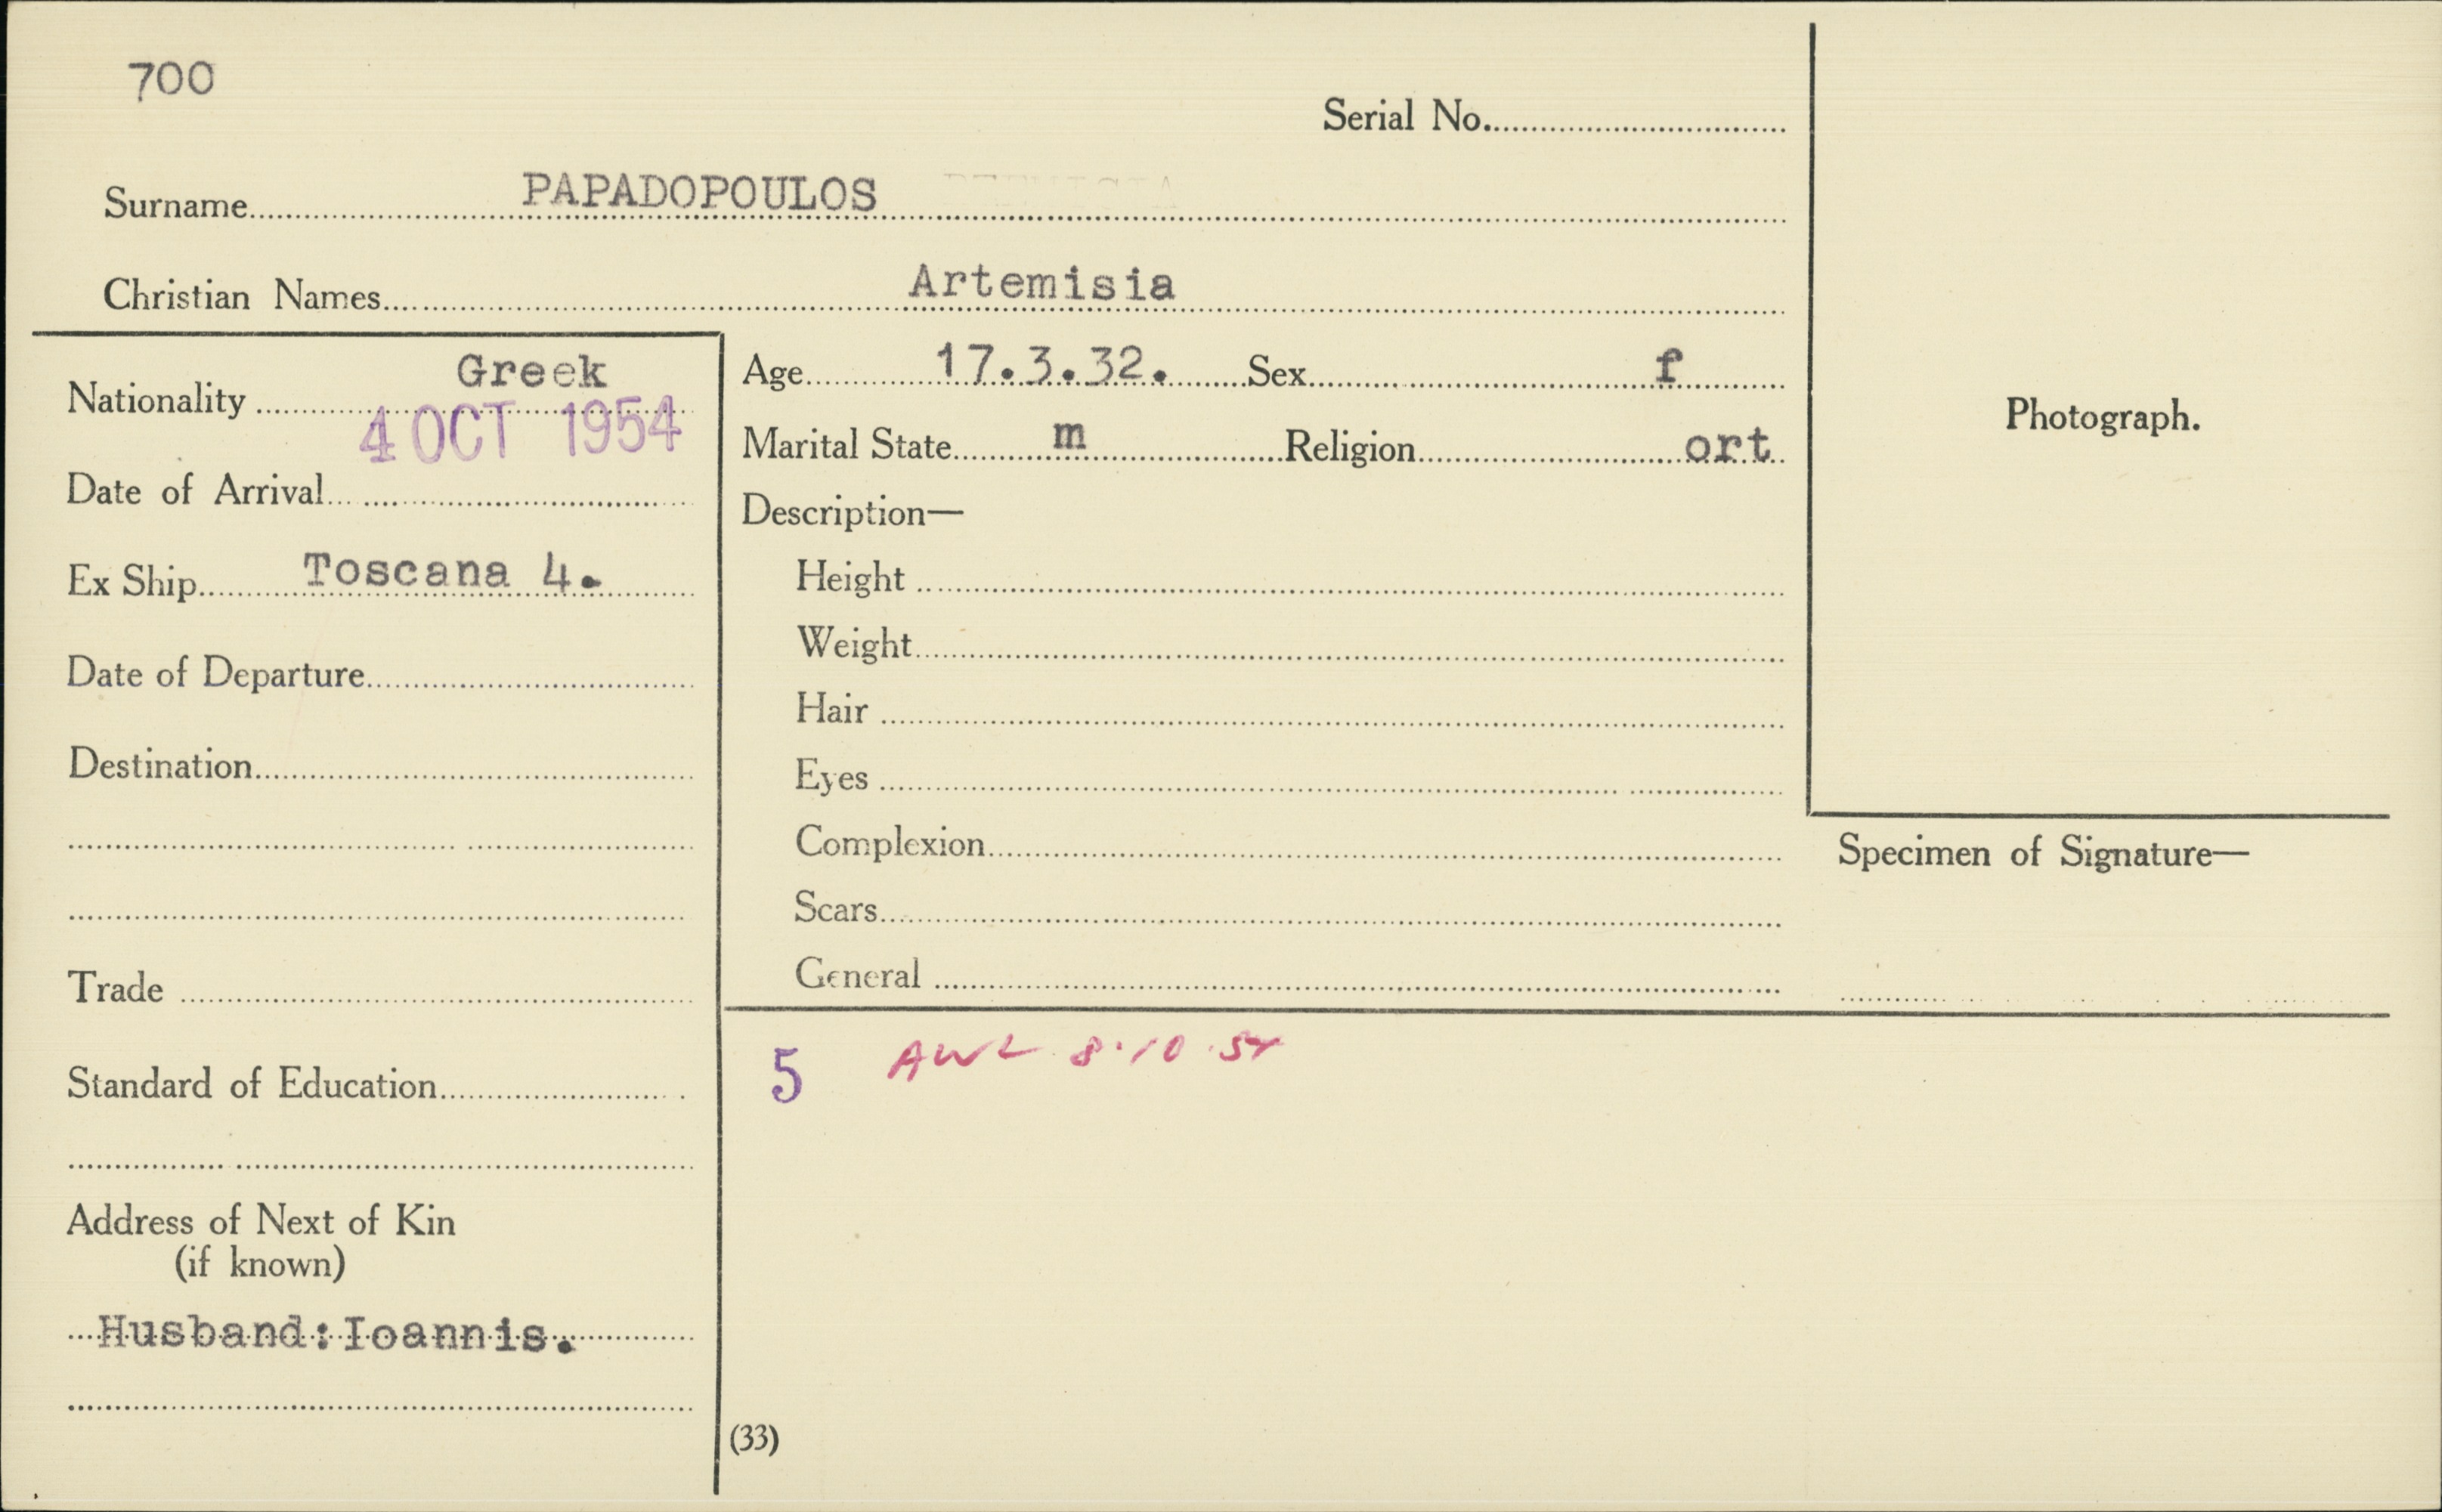 700
Serial No.
Surname PAPADOPOULOS
Christian Names Artemisia
Nationality Greek
4 OCT 1954
Date of Arrival
Ex Ship Toscana 4.
Date of Departure
Destination
Trade
Standard of Education
Address of Next of Kin
(if known)
Husband:Ioannis.
Age 17.3.32. Sex f
Marital State m Religion ort
Description—
Height
Weight
Hair
Eyes
Complexion
Scars
General
Photograph.
Specimen of Signature—
5 AWL 8.10.54
(33)